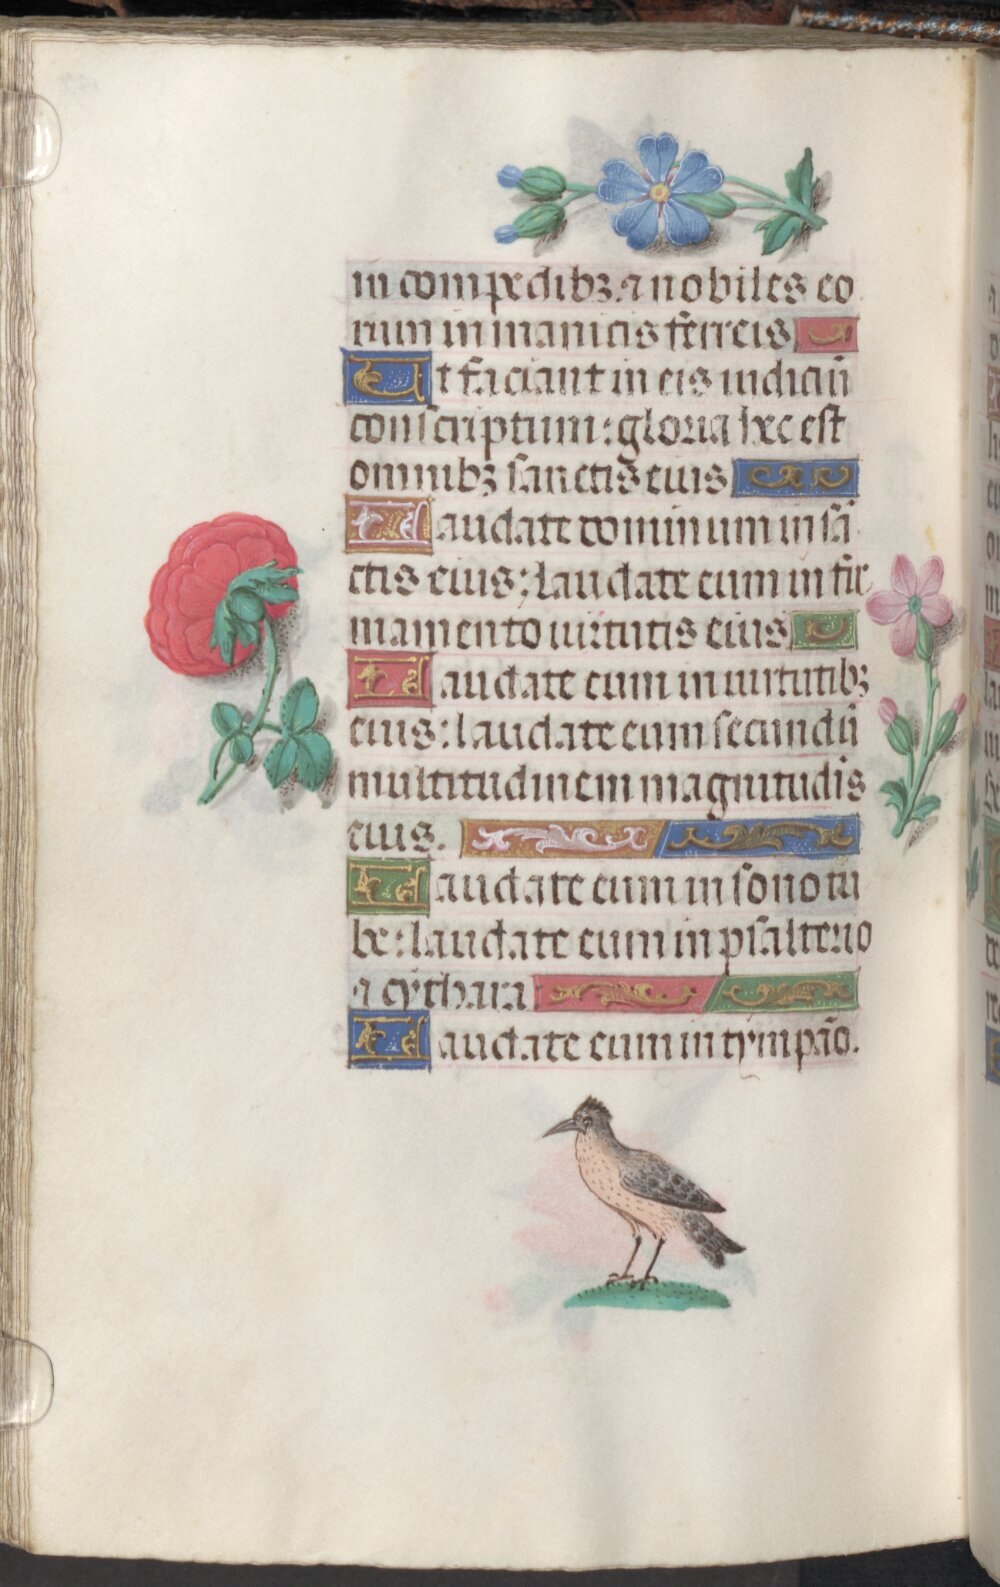 in compedibꝫ. ⁊ nobiles eo
rum in manicis ferreis
Ut faciant in eis iudiciū
conscriptum: gloria hec est
omnibꝫ sanctis eius
Laudate dominum in sā
ctis eius: laudate eum in fir
mamento uirtutis eius
Laudate eum in uirtutibꝫ
eius: laudate eum secundū
multitudinem magnitudis
eius.
Laudate eum in sono tu
be: laudate eum in psalterio
⁊ cythara
Laudate eum in tympāo.